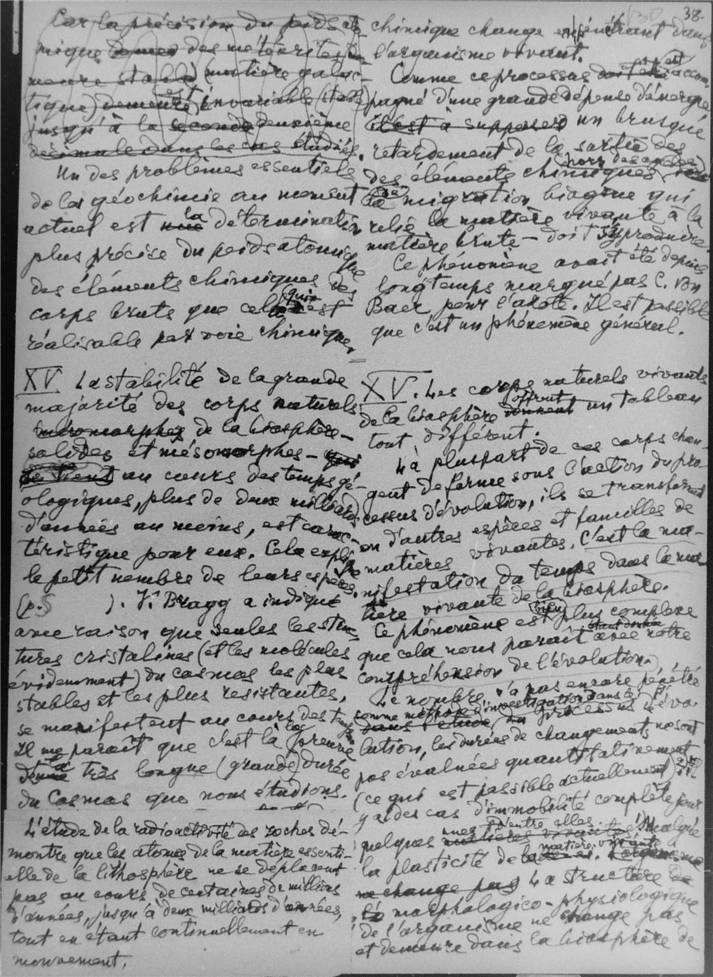 38.
Car la précision du poids ato
mique des météorites
meure stable matière galac-
tique) demeure invariable
jusqu'à la seconde deuxième
décimale dans les cas étudiés.
Un des problèmes essentiels
de la géochimie au moment
actuel est la détermination
plus précise du poids atomique
des éléments chimiques des
corps bruts que celle qui est
réalisable par voie chimique.
XV. La stabilité de la grande
majorité des corps naturels
de la biosphère –
solides et mésomorphes –
au cours des temps gé-
ologiques, plus de deux milliards
d'années au moins, est carac-
téristique pour eux. Cela explique
le petit nombre de leurs espèces.
(p. ). Bragg a indiqué
avec raison que seules les struc-
tures cristalines (et les molécules
évidemment) du cosmos les plus
stables et les plus resistantes,
se manifestent au cours des temps
Il me parait que c'est la preuve
d'une très longue (grande) durée
du Cosmos que nous étudions.
L'étude de la radioactivité des roches dé-
montre que les atomes de la matière essenti-
elle de la lithosphère ne se déplacent
pas au cours de centaines de millions
d'années, jusqu'à deux milliards d'années,
tout en étant continuellement en
mouvement.
chimique change en pénétrant dans
l'organisme vivant.
Comme ce processus est accom-
pagné d'une grande dépense d'énergie
il est à supposer un brusque
retardement de la sortie des
des éléments chimiques hors des corps
la migration biogène qui
relie la matière vivante à la
matière brute – doit s'y produire.
Ce phénomène avait été depuis
longtemps marqué par C. Bn
Baer pour l'azote. Il est possible
que c'est un phénomène général.
XV. Les corps naturels vivants
de la biosphère offrent un tableau
tout différent.
La plupart de ces corps chan-
gent de forme sous l'action du pro-
cessus d'évolution, ils se transforment
en d'autres espèces et familles de
matières vivantes. C'est la ma-
nifestation du temps dans la ma-
tière vivante de la biosphère.
Ce phénomène est bien plus complexe
que cela nous parait avec notre
compréhension de l'évolution.
Le nombre n'a pas encore pénétré
comme méthode d'investigation dans
processus d'évo-
lution, les durées de changements ne sont
pas évaluées quantitativement
(ce qui est possible actuellement)
y a des cas d'immobilité complète pour
quelques unes d'entre elles. Malgré
la plasticité de la matière vivante
ne change pas La structure
morphologico-physiologique
de l'organisme ne change pas
et demeure dans la biosphère de